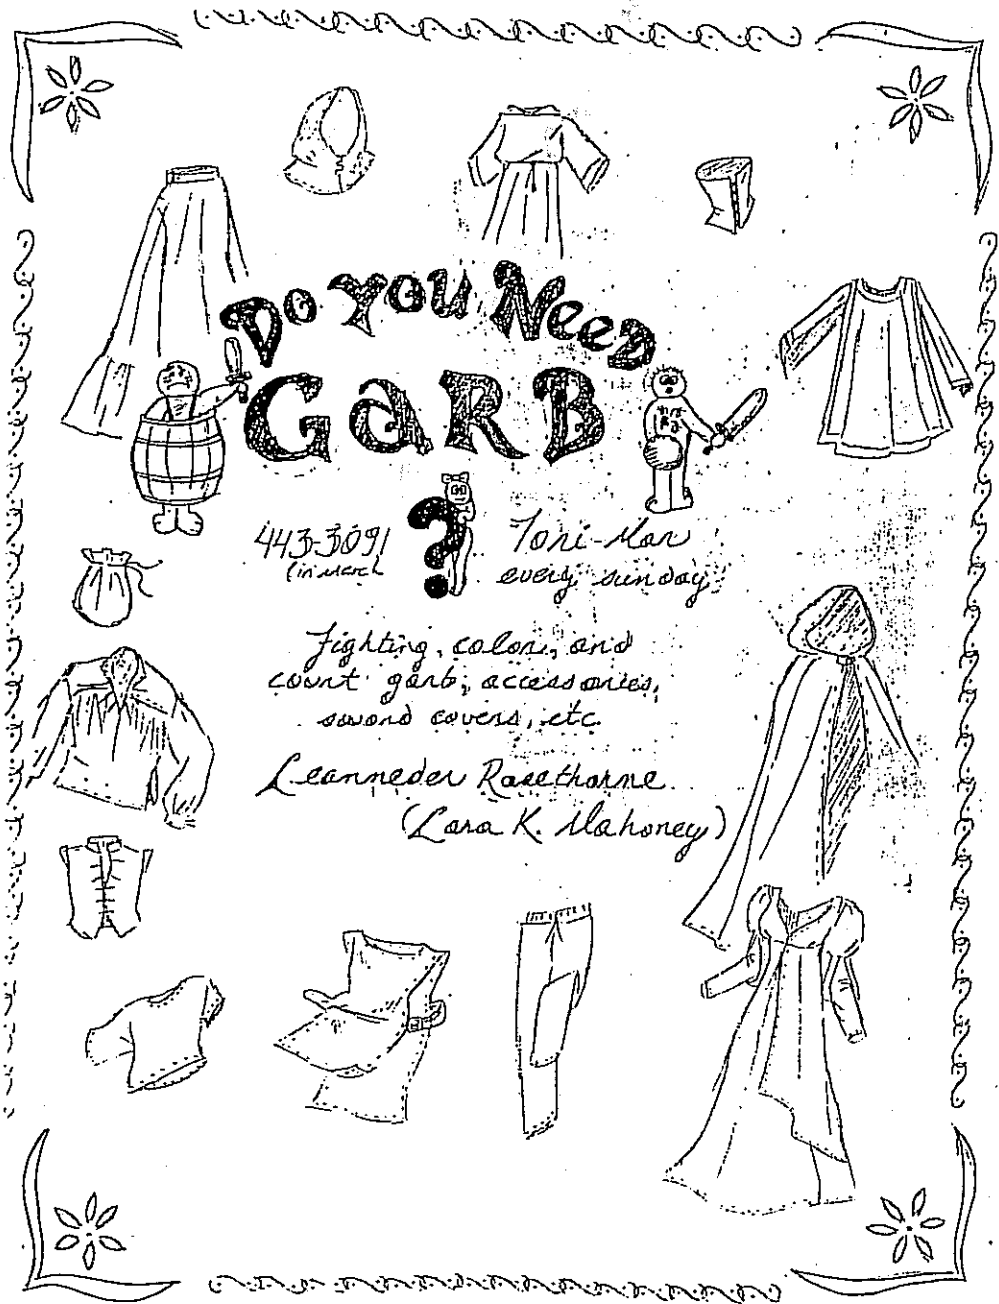 Do You Need
GaRB
?
443-3091
(in March
Tori-Mar
every sunday
Fighting, colors, and
court garb, accessories,
sword covers, etc.
Leanneder Rosethorne
(Lara K. Mahoney)